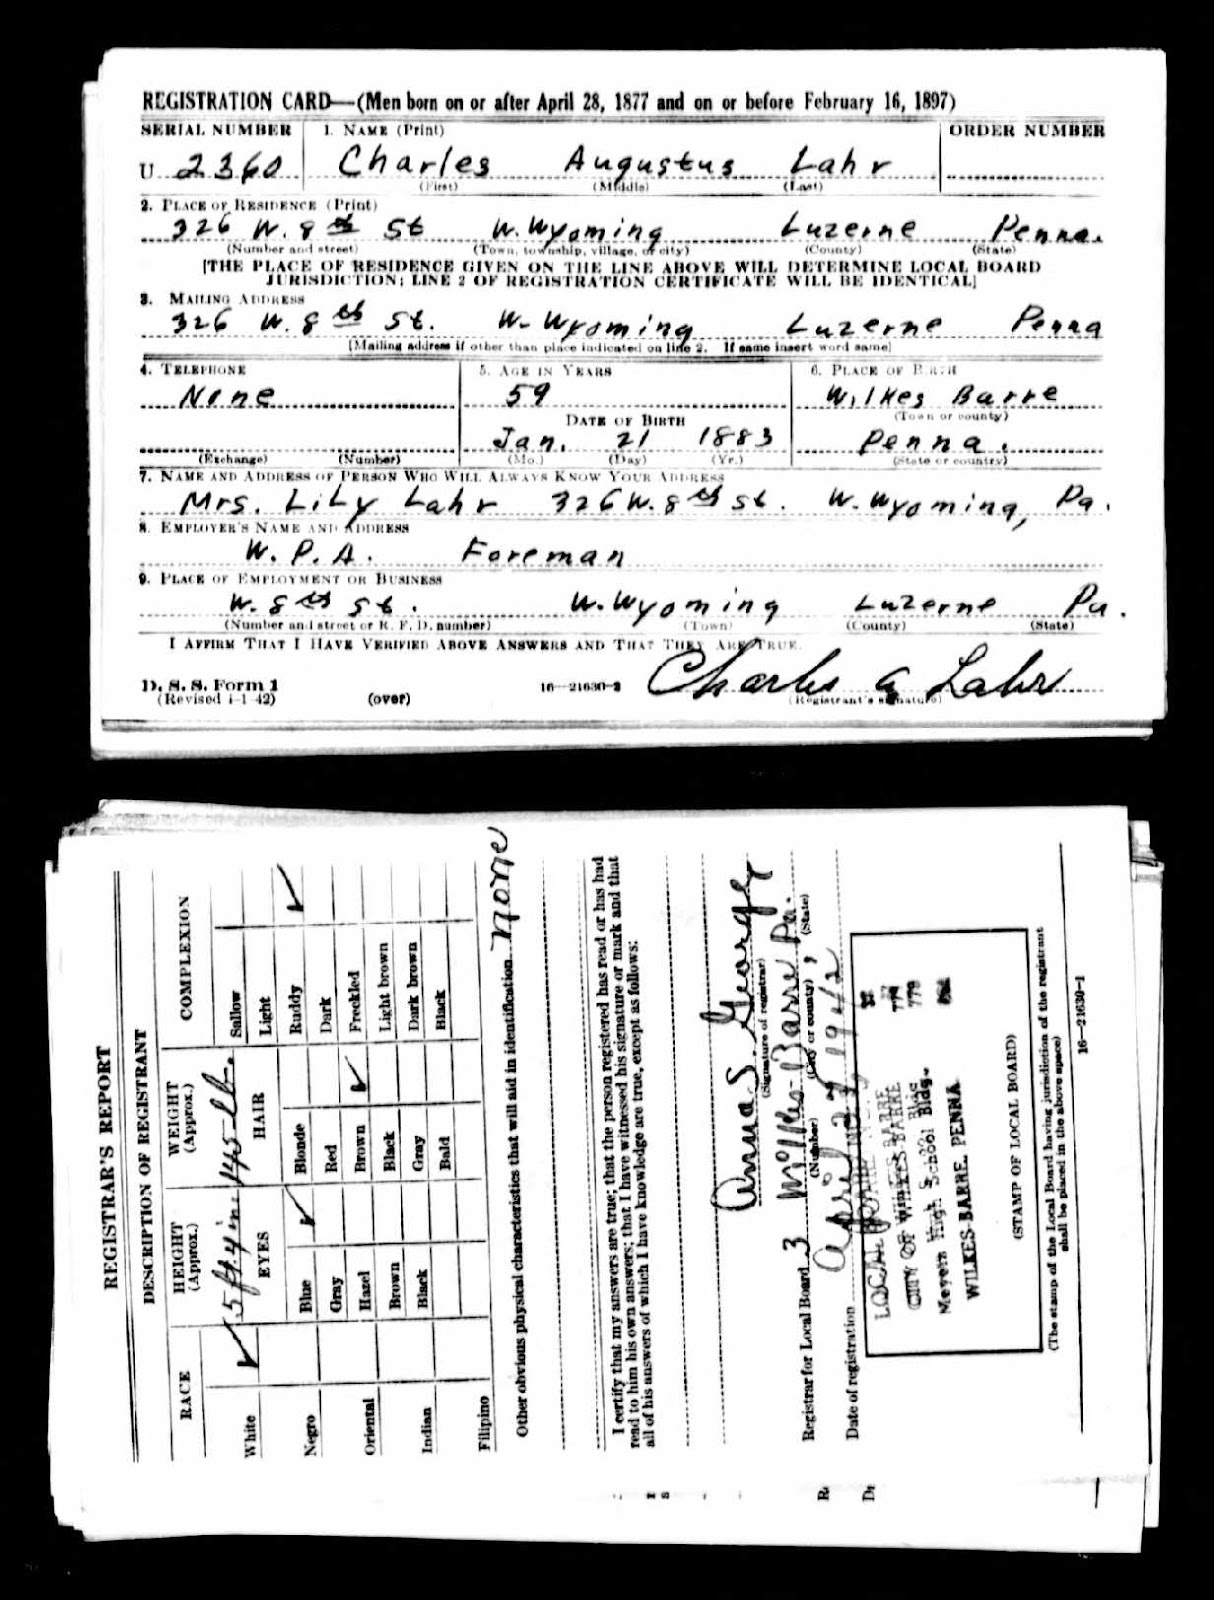 REGISTRATION CARD—(Men born on or after April 28, 1877 and on or before February 16, 1897)
SERIAL NUMBER 1. NAME (Print) ORDER NUMBER
U 2360 Charles Augustus Lahr
(First) (Middle) (Last)
2. PLACE OF RESIDENCE (Print)
326 W. 8th St W. Wyoming Luzerne Penna.
(Number and street) (Town, township, village, or city) (County) (State)
[THE PLACE OF RESIDENCE GIVEN ON THE LINE ABOVE WILL DETERMINE LOCAL BOARD
JURISDICTION; LINE 2 OF REGISTRATION CERTIFICATE WILL BE IDENTICAL]
3. MAILING ADDRESS
326 W. 8th St. W. Wyoming Luzerne Penna
[Mailing address if other than place indicated on line 2. If same insert word same]
4. TELEPHONE 5. AGE IN YEARS 6. PLACE OF BIRTH
None 59 Wilkes Barre
DATE OF BIRTH (Town or county)
Jan. 21 1883 Penna.
(Exchange) (Number) (Mo.) (Day) (Yr.) (State or country)
7. NAME AND ADDRESS OF PERSON WHO WILL ALWAYS KNOW YOUR ADDRESS
Mrs. Lily Lahr 326 W. 8th St. W. Wyoming, Pa.
8. EMPLOYER'S NAME AND ADDRESS
W. P. A. Foreman
9. PLACE OF EMPLOYMENT OR BUSINESS
W. 8th St. W. Wyoming Luzerne Pa.
(Number and street or R. F. D. number) (Town) (County) (State)
I AFFIRM THAT I HAVE VERIFIED ABOVE ANSWERS AND THAT THEY ARE TRUE.
D. S. S. Form 1
(Revised 4-1-42) (over) 16—21630-2 Charles A Lahr
(Registrant's signature)
REGISTRAR'S REPORT
DESCRIPTION OF REGISTRANT
RACE HEIGHT (Approx.) WEIGHT (Approx.) COMPLEXION
5 ft 4 in 145 lb.
White EYES HAIR Sallow
Light
Negro Blue Blonde Ruddy
Gray Red Dark
Oriental Hazel Brown Freckled
Brown Black Light brown
Indian Black Gray Dark brown
Bald Black
Filipino
Other obvious physical characteristics that will aid in identification None
I certify that my answers are true; that the person registered has read or has had
read to him his own answers; that I have witnessed his signature or mark and that
all of his answers of which I have knowledge are true, except as follows:
Anna S. George
(Signature of registrar)
Registrar for Local Board 3 Wilkes-Barre Pa.
(Number) (City or county) (State)
Date of registration April 27, 1942
LOCAL BOARD
CITY OF WILKES-BARRE
Meyers High School Bldg.
WILKES-BARRE, PENNA
(STAMP OF LOCAL BOARD)
(The stamp of the Local Board having jurisdiction of the registrant
shall be placed in the above space)
16—21630-1